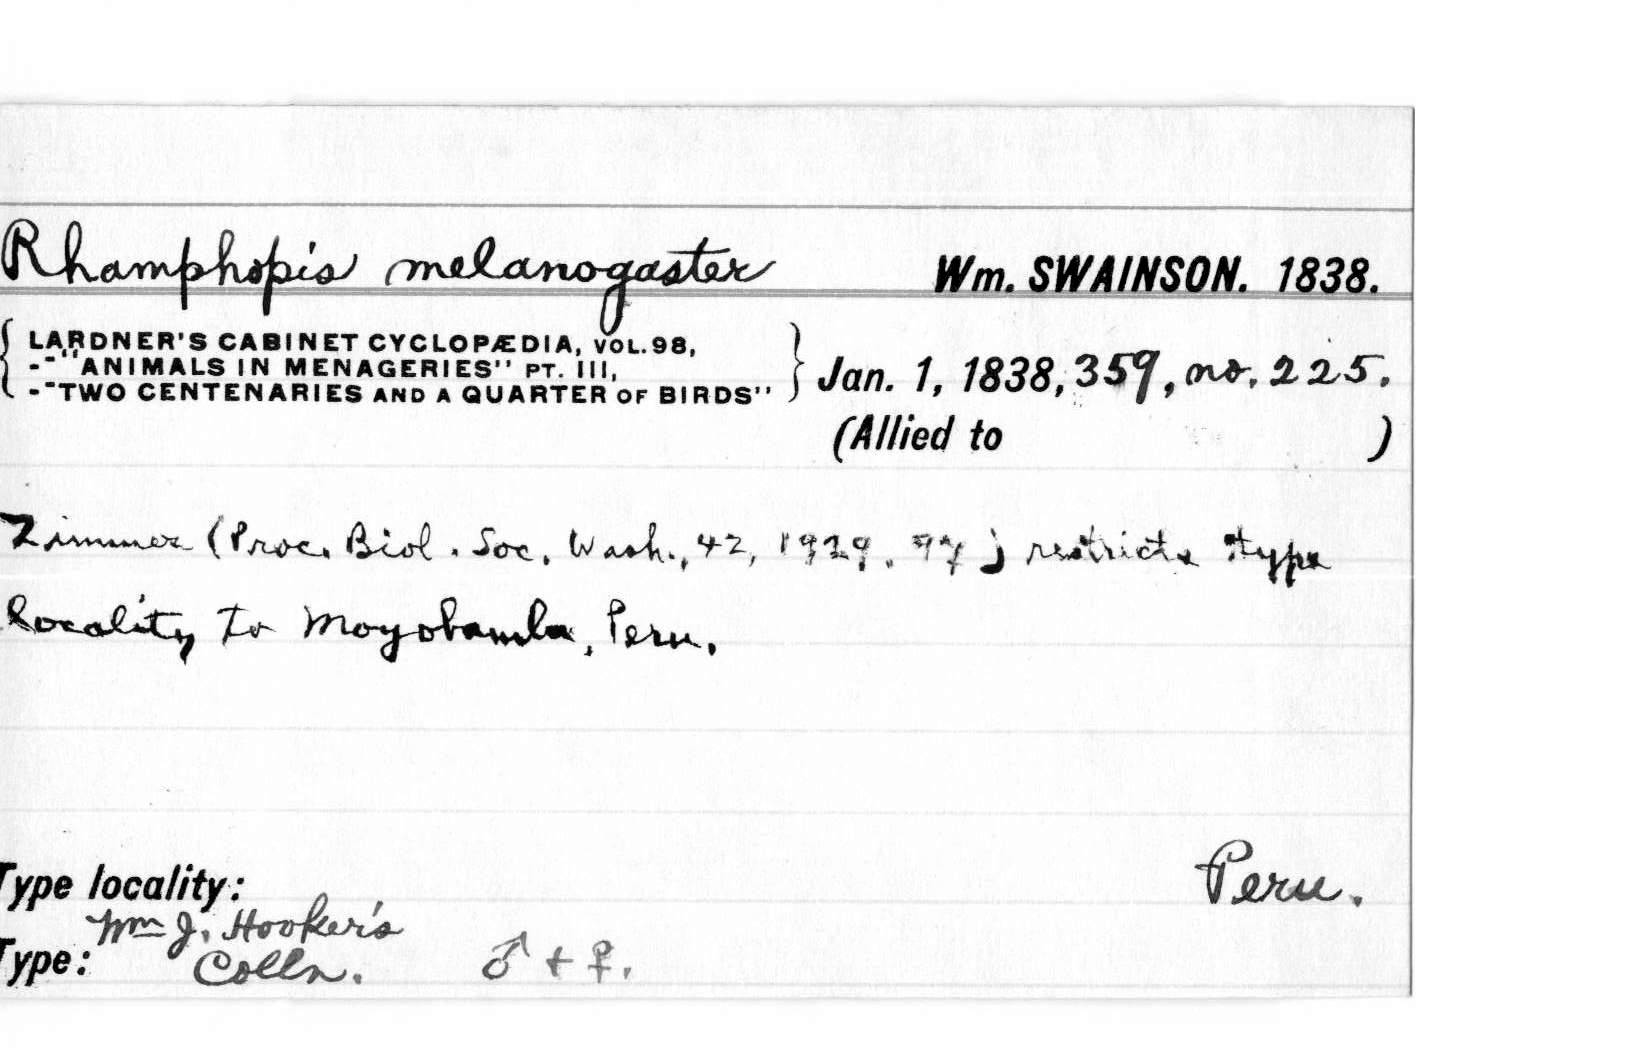 Rhamphopis melanogaster Wm. SWAINSON. 1838.
{ LARDNER'S CABINET CYCLOPÆDIA, VOL. 98,
-"ANIMALS IN MENAGERIES" PT. III,
-"TWO CENTENARIES AND A QUARTER OF BIRDS" } Jan. 1, 1838, 359, no. 225.
(Allied to )
Zimmer (Proc. Biol. Soc. Wash., 42, 1929, ) restricts type
locality to Moyobamba, Peru.
Type locality: Peru.
Wm J. Hooker's
Type: Colln. ♂ + ♀.